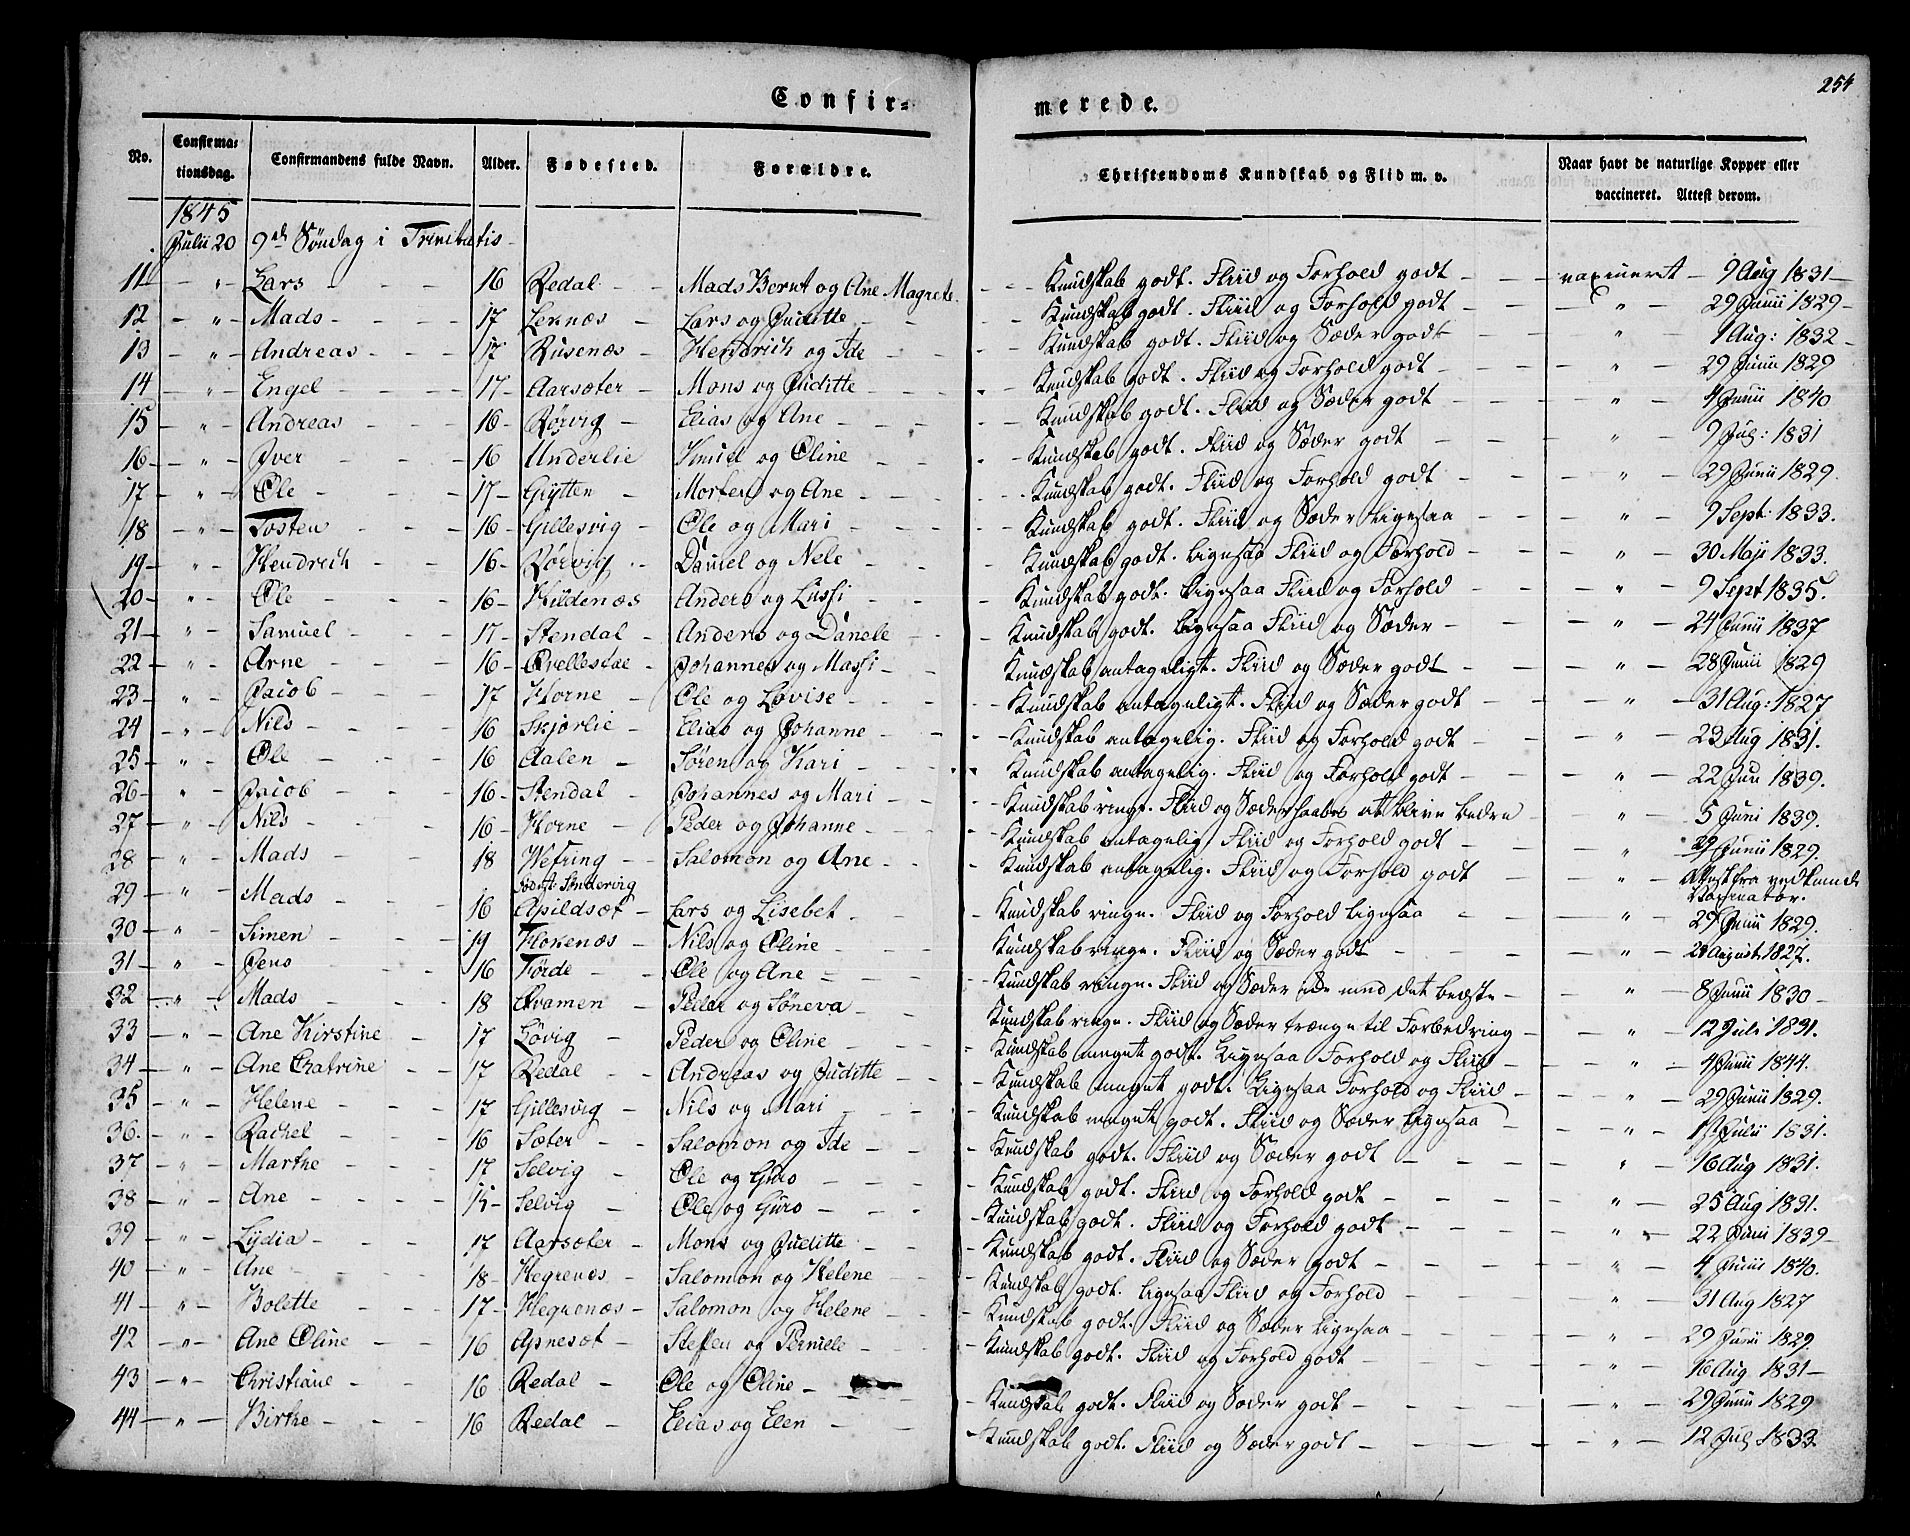 254
Confir= merede.
No. Confirma= tionsdag. Confirmandens fulde Navn. Alder. Fødested. Forældre. Christendoms Kundskab og Flid m. v. Naar havt de naturlige Kopper eller vaccineret. Attest derom.
1845
Julii 20 9de Søndag i Trinitatis
11 — " — Lars — — 16 Redal — Mads Bernt og Ane Magrete — Kundskab godt. Fliid og Forhold godt — vaxineret — 9 Aug 1831 —
12 — " — Mads — — 17 Leknæs — Lars og Juditte — Kundskab godt. Fliid og Forhold godt — " — 29 Junii 1829 —
13 — " — Andreas — — 17 Rusenæs — Hendrich og Ide — Kundskab godt. Fliid og Sæder godt — " — 1 Aug: 1832 —
14 — " — Engel — — 17 — Aarsæter — Mons og Juditte — Kundskab godt. Fliid og Forhold godt — " — 29 Junii 1829
15 — " — Andreas — — 16 — Rørvig — Elias og Ane — Kundskab godt. Fliid og Sæder godt — " — 4 Junii 1840
16 — " — Iver — — 16 Underlie Knud og Oline — Kundskab godt. Fliid og Sæder godt — " — 9 Jul: 1831
17 — " — Ole — — 17 — Grytten — Morten og Ane — Kundskab godt. Fliid og Forhold godt — " — 29 Junii 1829.
18 — " — Tosten — — 16 — Gillesvig — Ole og Mari — Kundskab godt. Fliid og Sæder ligesaa — " — 9 Sept: 1833.
19 — " — Hendrich — — 16 — Rørvig — Daniel og Nele — Kundskab godt. ligesaa Fliid og Forhold — " — 30 Maji 1833.
20 — " — Ole — — 16 — Hildenæs Anders og Lussi — Kundskab godt. ligesaa Fliid og Forhold — " — 9 Sept 1835.
21 — " — Samuel — — 17 — Stendal — Anders og Danele — Kundskab godt. ligesaa Fliid og Sæder — " — 24 Junii 1837
22 — " — Arne — — 16 — Qvellestae Johannes og Massi — Kundskab antageligt. Fliid og Sæder godt — " — 28 Junii 1829
23 — " — Jacob — — 17 Horne — Ole og Lovise — Kundskab antageligt. Fliid og Sæder godt — " — 31 Aug: 1827
24 — " — Nils — — 16 Skjørlie — Elias og Johanne — Kundskab antagelig. Fliid og Forhold godt — " — 23 Aug 1831.
25 — " — Ole — — 16 Aalen — Søren og Kari — Kundskab antagelig. Fliid og Forhold godt — " — 22 Jun 1839.
26 — " — Jacob — — 16 — Stendal — Johannes og Mari — Kundskab ringe. Fliid og Sæder haabes at blive bedre — " — 5 Juni 1839.
27 — " — Nils — — 16 — Horne — Peder og Johanne — Kundskab antagelig Fliid og Forhold godt — " — 29 Junii 1829.
28 — " — Mads — — 18 Wefring — Salomon og Ane — Kundskab antagelig. Fliid og Forhold godt — " — Attest fra vedkomde Vaccinatør.
29 — " — Mads — — 16 Apildsæt — Lars og Lisebet — Kundskab ringe. Fliid og Forhold ligesaa — " — 29 Junii 1829.
30 — " — Simen — — 19 Flokenæs — Nils og Oline — Kundskab ringe. Fliid og Sæder godt — " — August 1827.
31 — " — Jens — — 16 Førde — Ole og Ane — Kundskab ringe. Fliid og Sæder med det bedste — " — 8 Junii 1830 —
32 — " — Mads — — 18 Qvamen — Peder og Søneva — Kundskab ringe. Fliid og Sæder trænge til Forbedring — " — 12 Juli 1831.
33 — " — Ane Kirstine — 17 Løvig — Peder og Oline — Kundskab meget godt. ligesaa Forhold og Fliid — " — 4 Junii 1844.
34 — " — Ane Chatrine — — 17 Redal — Andreas og Juditte — Kundskab meget godt. ligesaa Forhold og Fliid — " — 29 Junii 1829.
35 — " — Helene — — 17 Gillesvig — Nils og Mari — Kundskab meget godt. Fliid og Sæder ligesaa — " — Julii 1831.
36 — " — Rachel — — 16 Sæter — Salomon og Ide — Kundskab godt. Fliid og Sæder godt — " — 16 Aug 1831.
37 — " — Marthe — — 17 Selvig — Ole og Guro — Kundskab godt. Fliid og Forhold godt — " — 25 Aug 1831.
38 — " — Ane — — 15 — Selvig — Ole og Guro — Kundskab godt. Fliid og Forhold godt — " — 22 Junii 1839 —
39 — " — Lydia — — 17 Aarsæter — Mons og Juditte — Kundskab godt. Fliid og Sæder godt — " — 4 Junii 1840.
40 — " — Ane — — 18 — Hegrenæs — Salomon og Helene — Kundskab godt. ligesaa Fliid og Forhold — " — 31 Aug 1827
41 — " — Bolette — — 17 — Hegrenæs — Salomon og Helene — Kundskab godt. Fliid og Sæder ligesaa — " — 29 Junii 1829.
42 — " — Ane Oline — — 16 Apnesæt — Steffen og Pernele — Kundskab godt. Fliid og Forhold godt — " — 16 Aug 1831 —
43 — " — Christiane — — 16 Redal — Ole og Oline — Kundskab godt. Fliid og Sæder godt — " — 29 Junii 1829
44 — " — Birthe — — 16 Redal — Elias og Elen — Kundskab godt. Fliid og Sæder godt — " — 12 Jul 1833